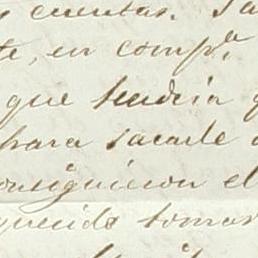 y cuentas. Sa
te, en comp.a
que tendria q
para sacarle a
onsiguieron el
querido tomar